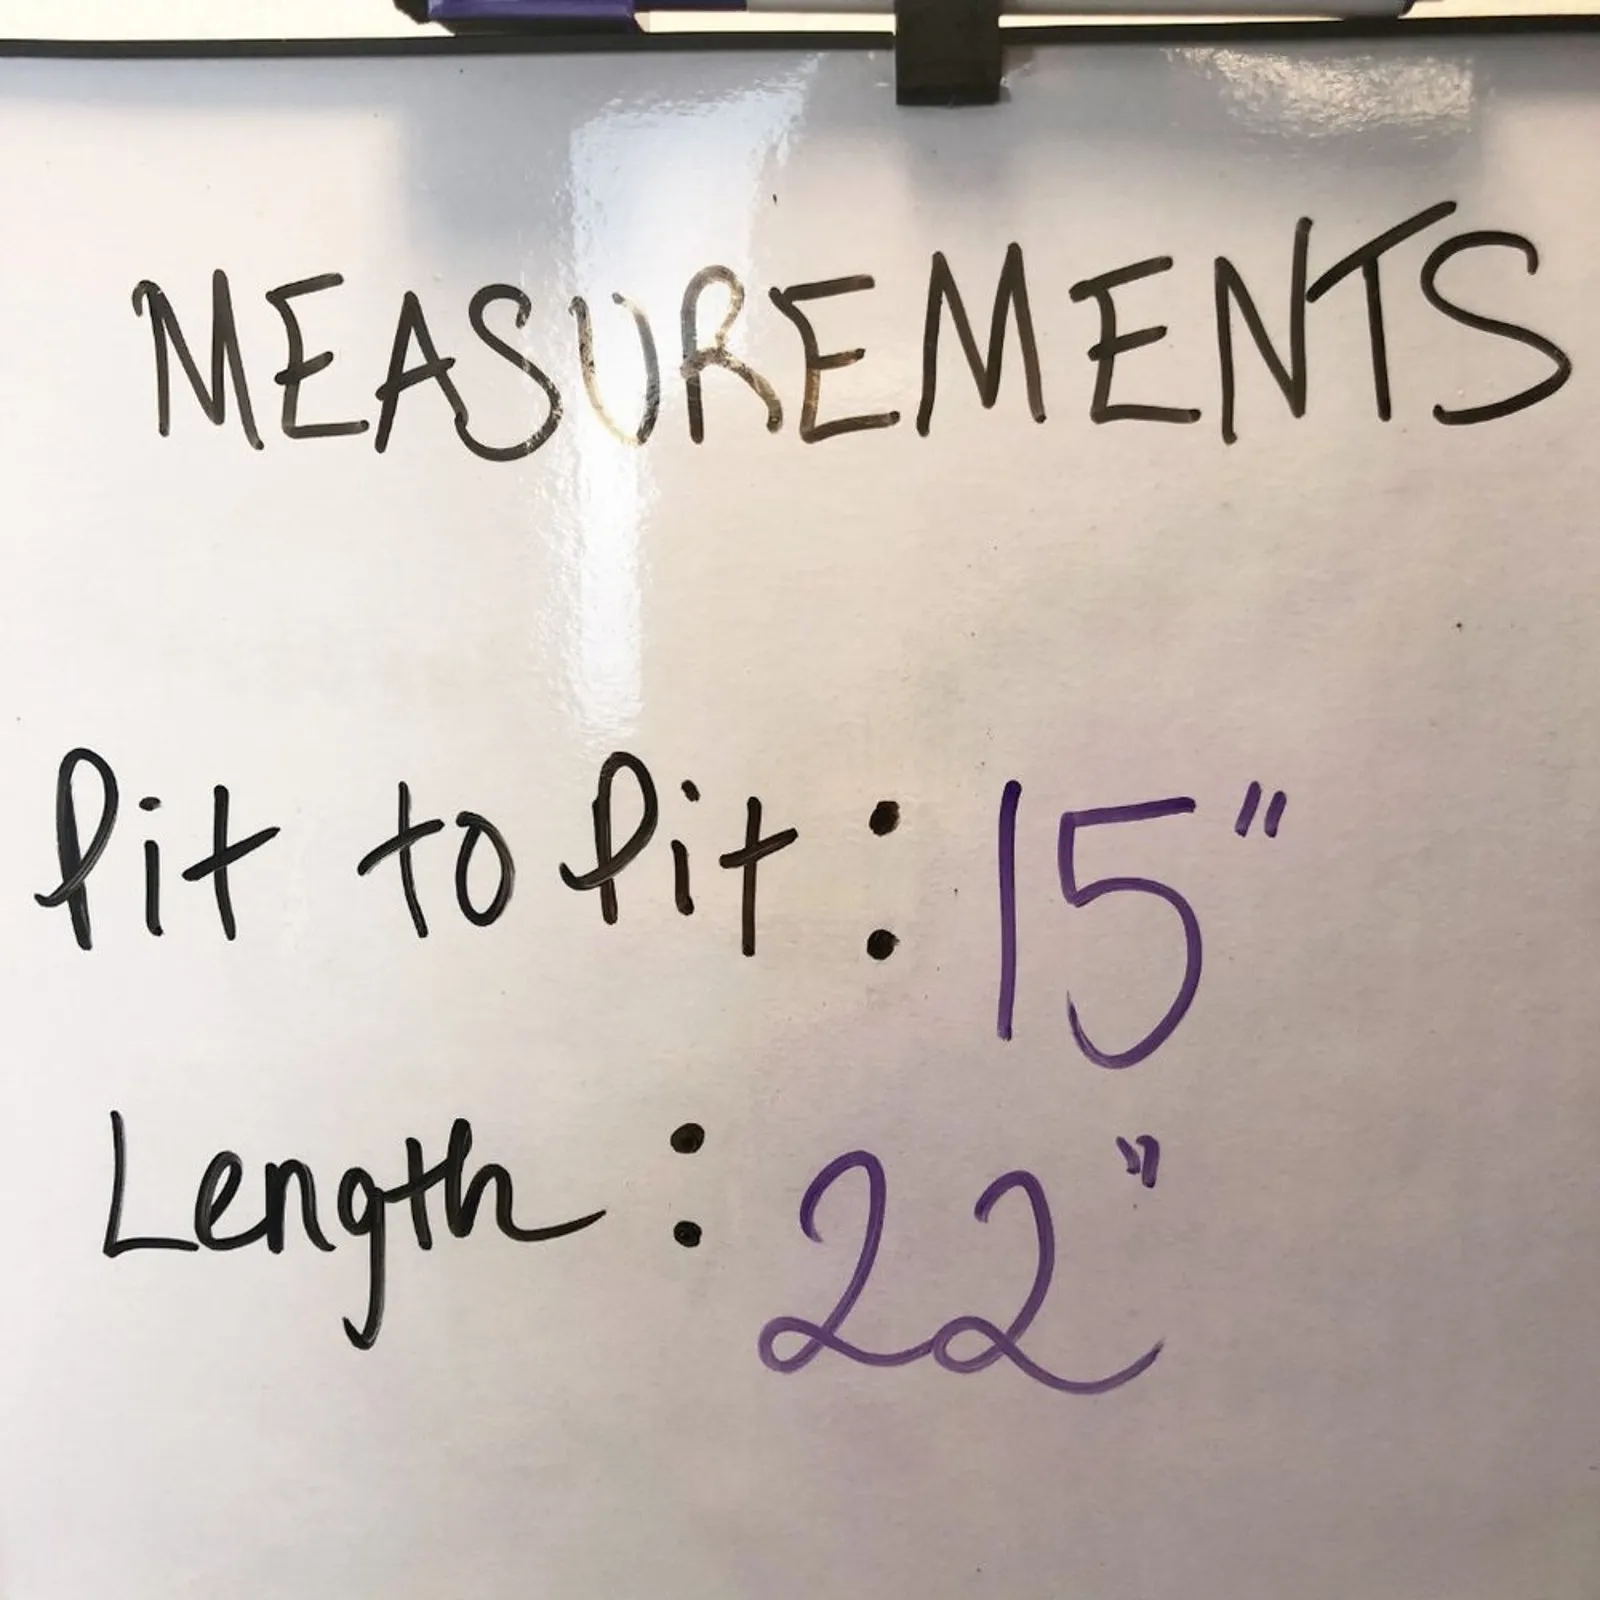 MEASUREMENTS
Pit to Pit : 15"
Length : 22"